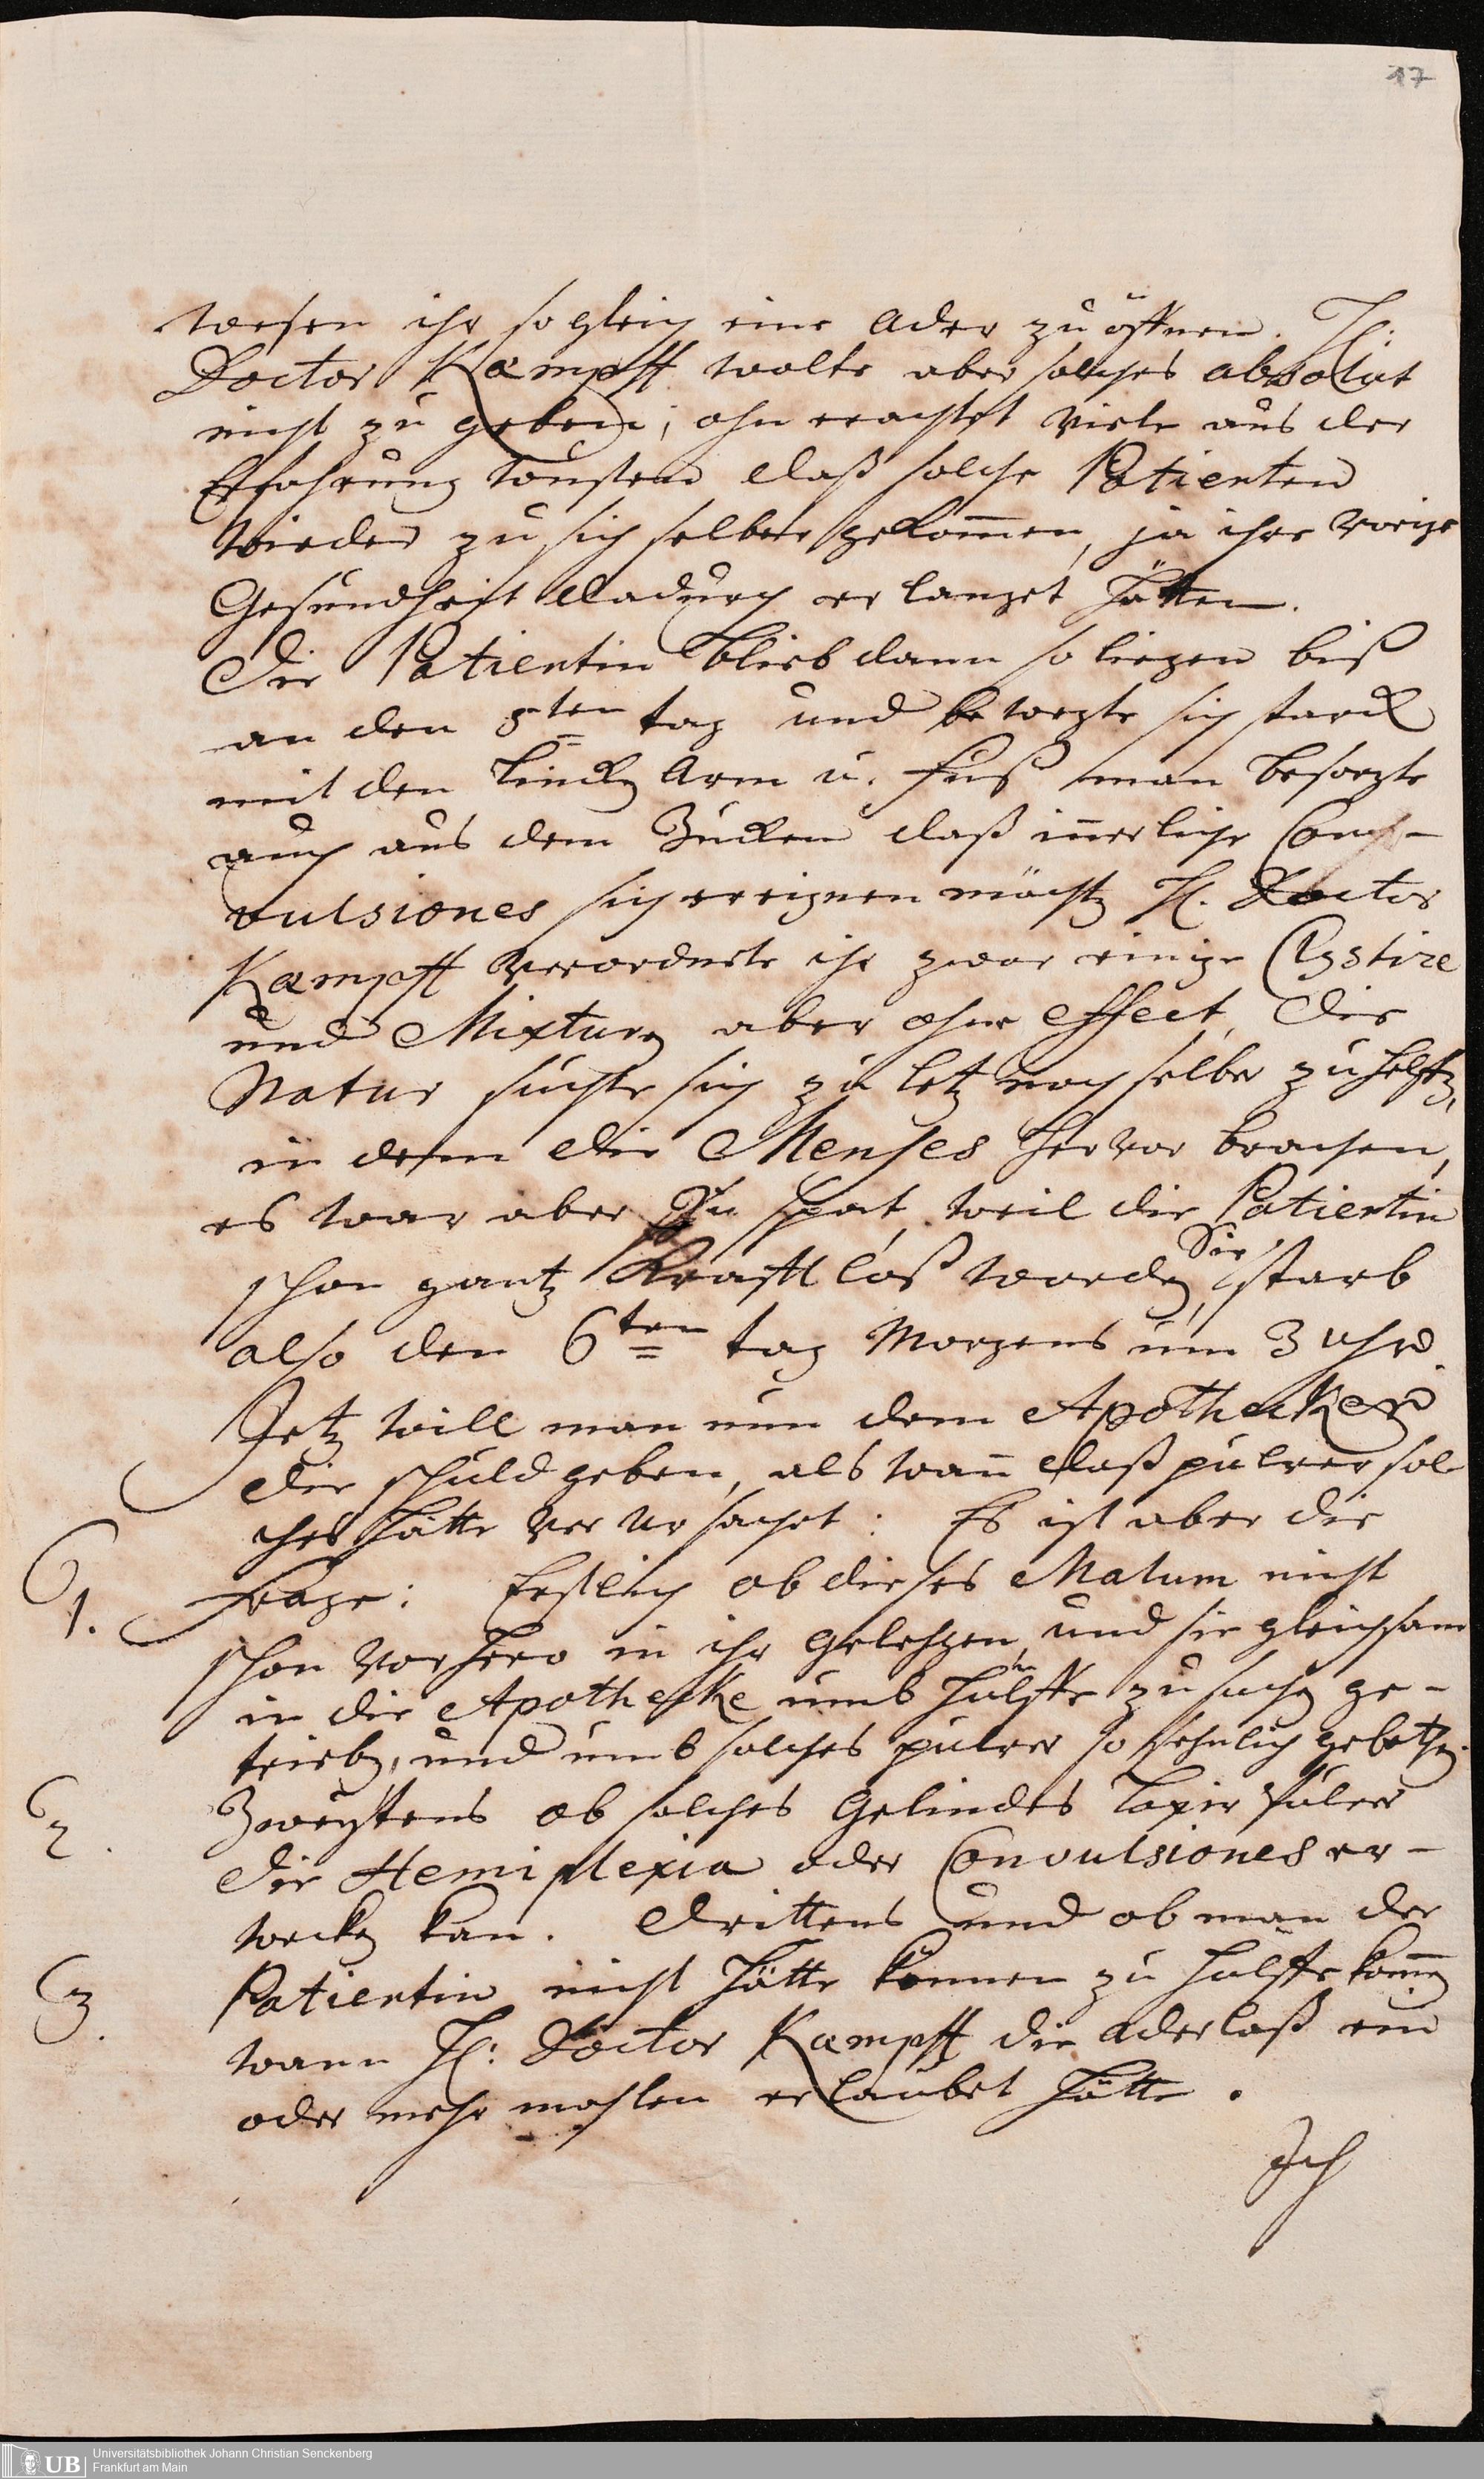 17
wesen ihr so gleich eine Ader zu öffnen. H.
Doctor Kæmpff wolte aber solches absolut
nicht zu geben; ohn erachtet viele aus der
Erfahrung wusten daß solche Patienten
wieder zu sich selber gekommen, ja ihre vorige
Gesundheit dadurch er langet hätten.
Die Patientin blieb dann so liegen biß
an den 5ten tag und be wegte sich starck
mit den lincken Arm u. Fuß man besorgte
auch aus dem Zucken daß innerliche Con-
vulsiones sich ereignen möchten H. Doctor
Kæmpff verordnete ihr zwar einige Clystire
und Mixturen aber ohne Effect, Die
Natur suchte sich zu letz noch selber zu helffen,
in dem die Menses hervor brachen,
es war aber zu spat, weil die Patientin
schon gantz Krafft loß worden, Sie starb
also den 6ten tag Morgens um 3 Uhr.
Jetz will man nun dem Apothecker
die schuld geben, als wann daß pulver sol
ches hätte ver ursachet: Es ist aber die
1. Frage: Erstlich ob dieses Malum nicht
schon vorhero in ihr gelegen, und sie gleichsam
in die Apothecke umb hülffe zu suchen ge-
trieben, und umb solches pulver so sehnlich gebethen.
2. Zweytens ob solches Gelindes Laxir pulver
die Hemiplexia oder Convulsiones er-
wecken kan. Drittens und ob man der
3. Patientin nicht hätte können zu hülffe kommen
wann H: Doctor Kæmpff die Aderlaß ein
oder mehr mahlen erlaubet hätte.
Ich
UB
Universitätsbibliothek Johann Christian Senckenberg
Frankfurt am Main